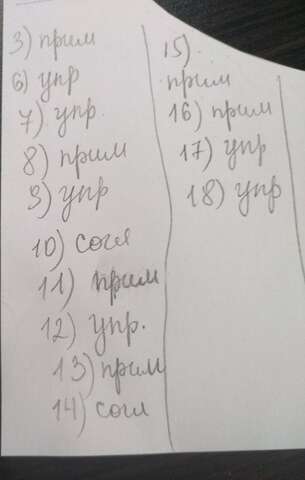 3) прим
6) упр
7) упр.
8) прим
9) упр
10) согл
11) прим
12) упр.
13) прим
14) согл
15).
прим
16) прим
17) упр
18) упр